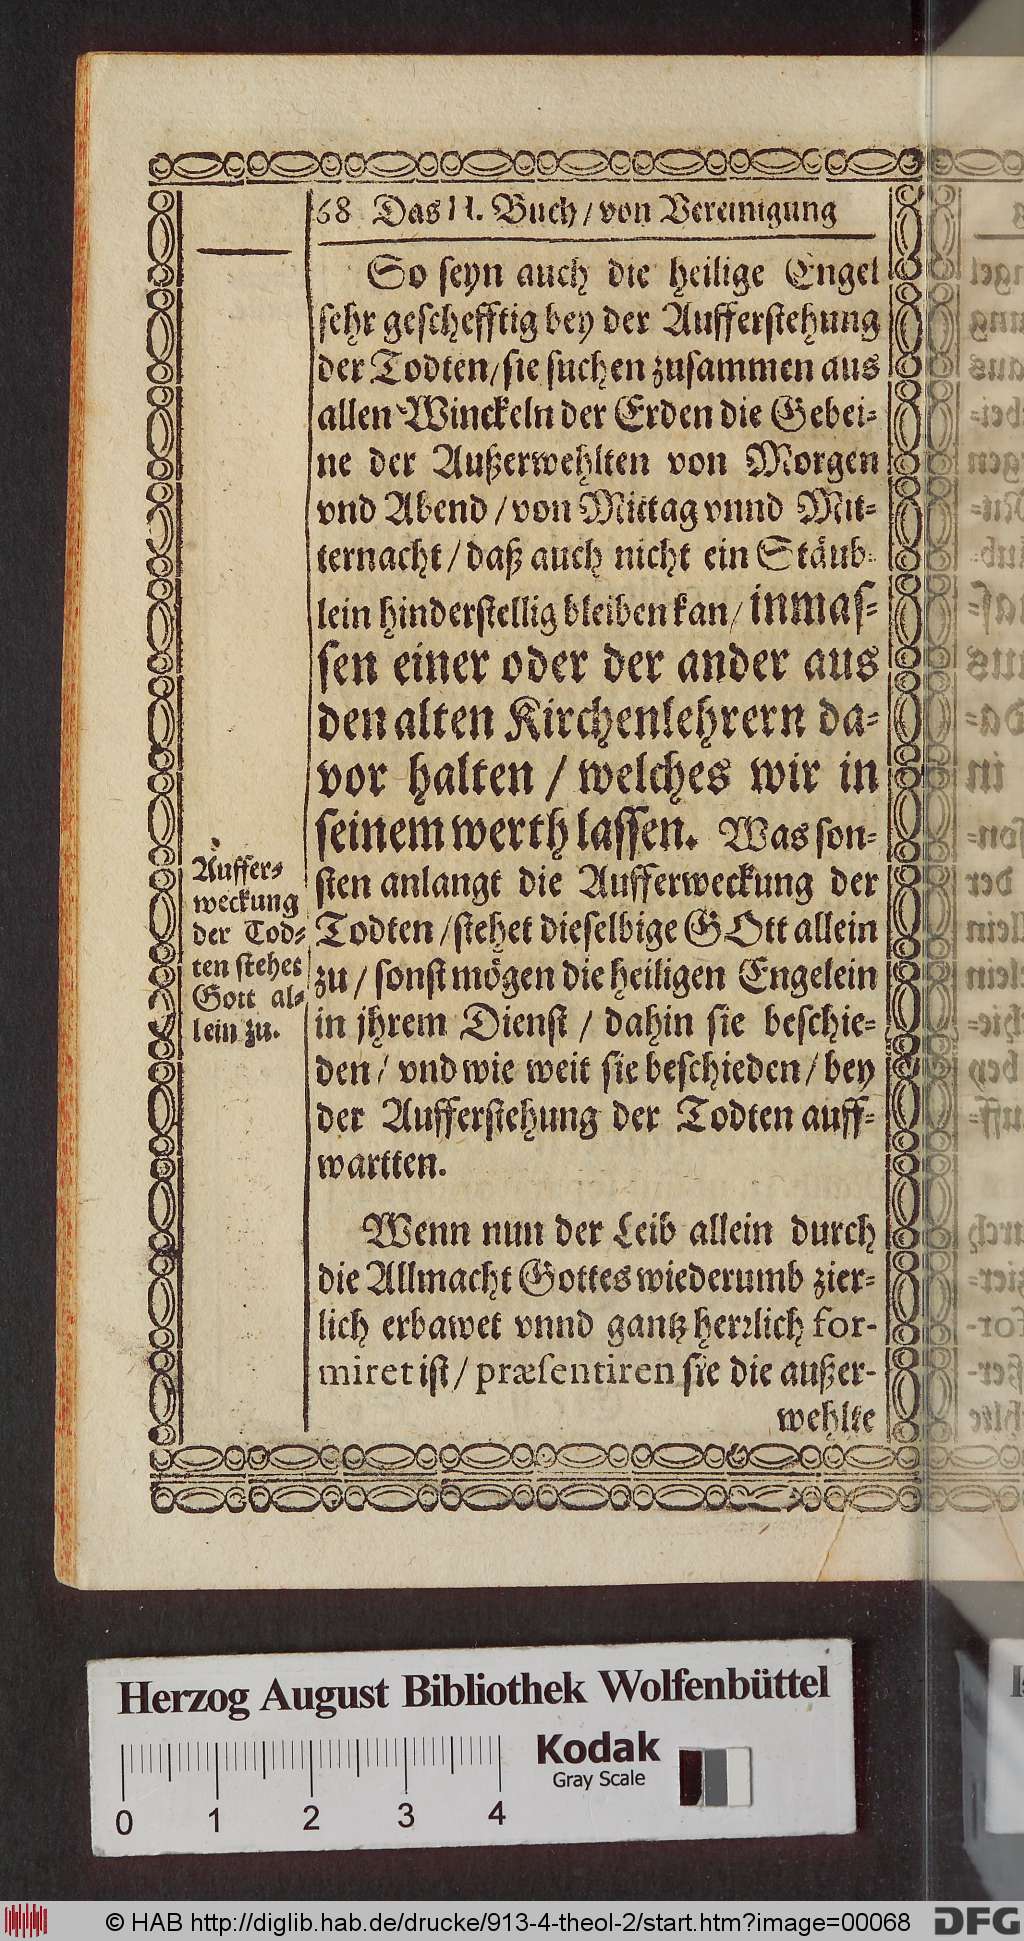 68 Das II. Buch / von Vereinigung
So seyn auch die heilige Engel
sehr geschefftig bey der Aufferstehung
der Todten / sie suchen zusammen aus
allen Winckeln der Erden die Gebei-
ne der Außerwehlten von Morgen
vnd Abend / von Mittag vnnd Mit-
ternacht / daß auch nicht ein Stäub-
lein hinderstellig bleiben kan / inmas-
sen einer oder der ander aus
den alten Kirchenlehrern da-
vor halten / welches wir in
seinem werth lassen. Was son-
sten anlangt die Aufferweckung der
Todten / stehet dieselbige GOtt allein
zu / sonst mögen die heiligen Engelein
in jhrem Dienst / dahin sie beschie-
den / vnd wie weit sie beschieden / bey
der Aufferstehung der Todten auff-
wartten.
Auffer-
weckung
der Tod-
ten stehet
Gott al-
lein zu.
Wenn nun der Leib allein durch
die Allmacht Gottes wiederumb zier-
lich erbawet vnnd gantz herrlich for-
miret ist / præsentiren sie die außer-
wehlte
Herzog August Bibliothek Wolfenbüttel
Kodak
Gray Scale
0 1 2 3 4
© HAB http://diglib.hab.de/drucke/913-4-theol-2/start.htm?image=00068
DFG